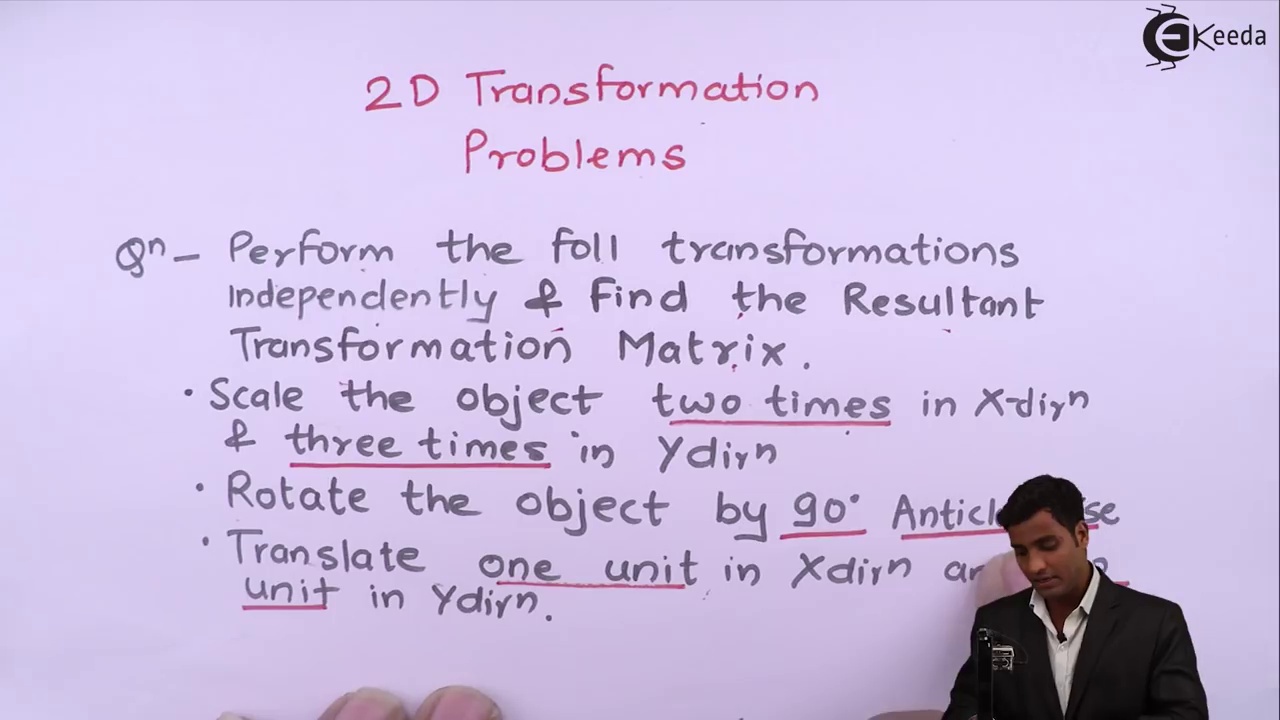 EKeeda
2D Transformation
Problems
Qn - Perform the foll transformations
Independently & Find the Resultant
Transformation Matrix.
• Scale the object two times in X-dirn
& three times in Ydirn
• Rotate the object by 90°
• Translate one unit in Xdirn
unit in Ydirn.